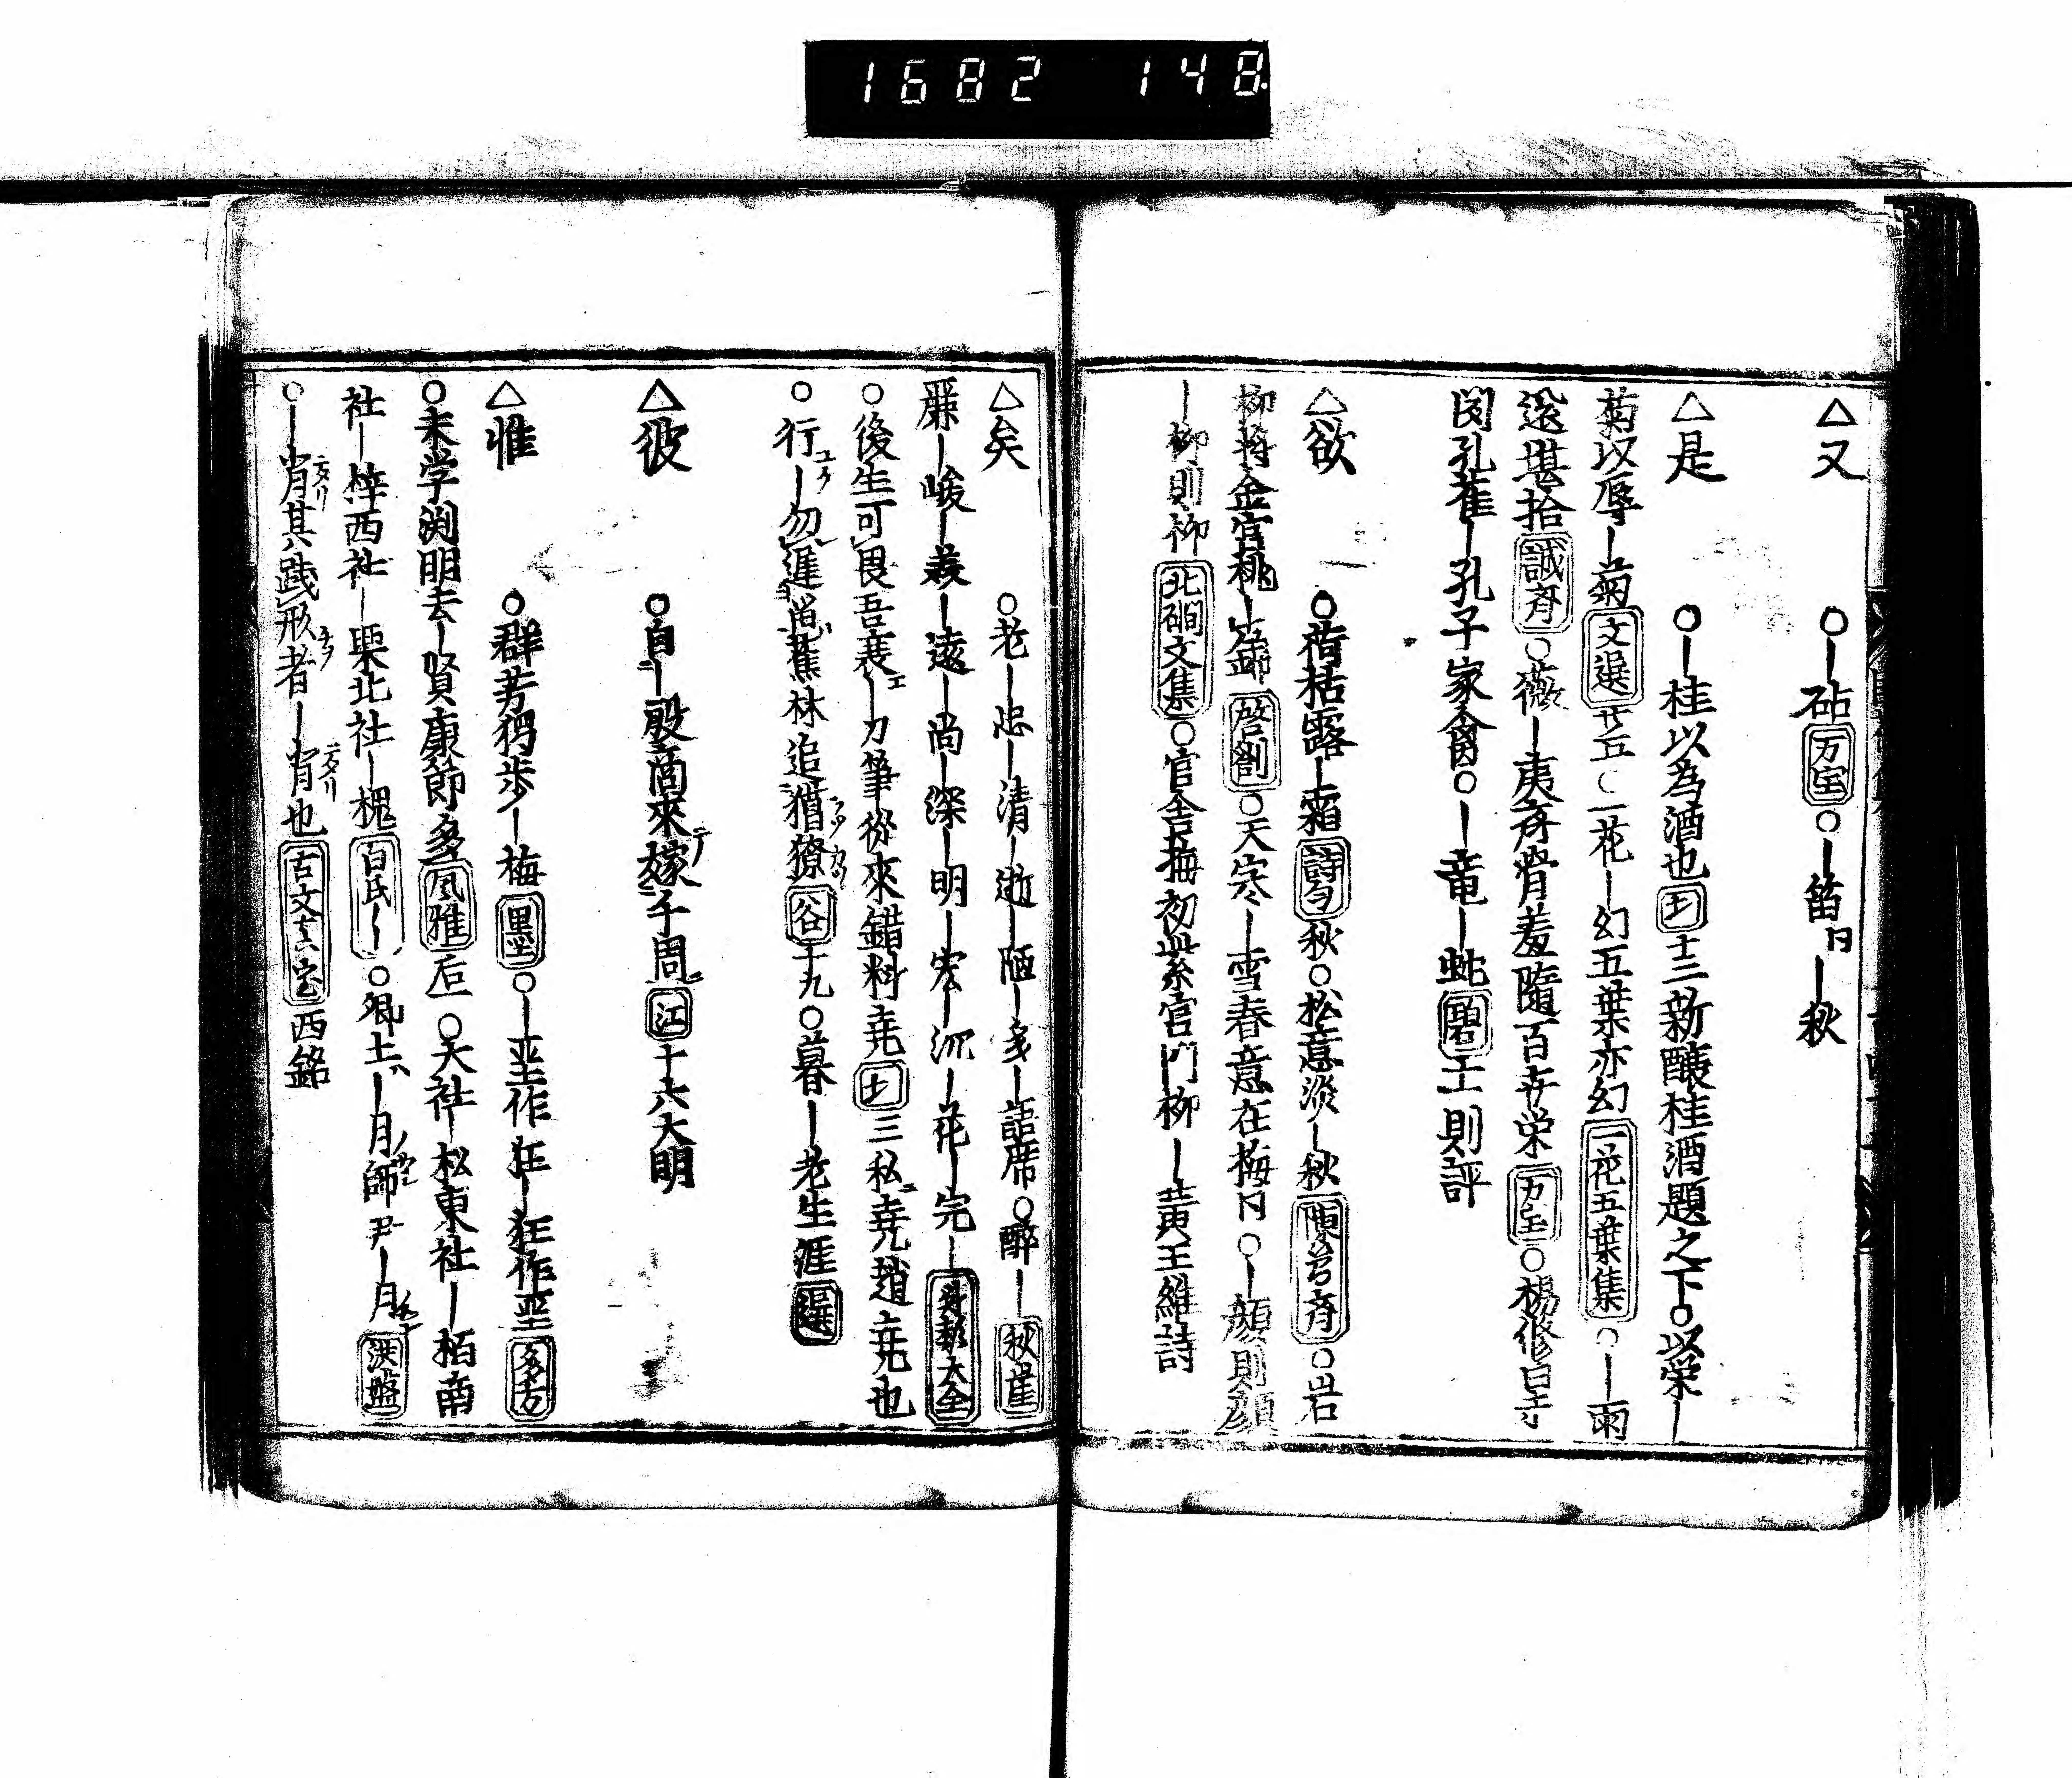 1682 148
△又 ○｜砧 万宝 ○｜笛｜秋
△是 ○｜桂以為酒也 十三新釀桂酒題之下○以栄｜
菊以辱｜菊 文選 廿五○一花｜幻五葉亦幻 一花五葉集 ○｜雨
還堪拾 誠斎 ○薇｜夷斉骨羞隨百卉栄 万宝 ○楊修曰
孔雀｜孔子家禽○｜竜｜蛇 碧 五則評
△欲 ○荷枯露｜霜 詩勻 秋○松意淡｜秋 陳 斉 ○岩
柳将金官桃｜錦 啓劄 ○天寒｜雪春意在梅 ○｜顔則顔
｜柳則柳 北礀文集 ○官舎梅初紫官門柳｜黄王維詩
△矣 ○老｜忠｜清｜逝｜陋｜多｜語席○酔｜ 秋崖
廉｜峻｜義｜遠｜尚｜深｜明｜宏｜沉｜花｜完｜ 大全
○後生可畏吾衰｜刀筆従來錯料尭 三私尭趙尭也
○行｜勿遲 蕉林追猶獠 谷 十九○暮｜老生涯 選
△彼 ○自｜殷商來嫁于周 江 十六大明
△惟 ○群芳独歩｜梅 墨 ○｜聖作狂｜狂作聖 多方
○未学渕明去｜賢康節多 風雅 后○大社｜松東社｜栢南
社｜梓西社｜栗北社｜槐 白氏｜ ○卿士｜月師尹｜月 洪盤
○｜肖其践形者｜肖也 古文真宝 西銘